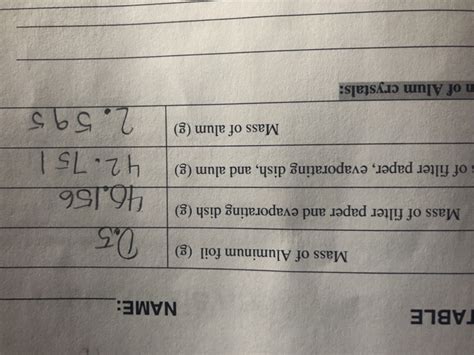 TABLE NAME:
Mass of Aluminum foil (g) 0.5
Mass of filter paper and evaporating dish (g) 40.156
of filter paper, evaporating dish, and alum (g) 42.751
Mass of alum (g) 2.595
of Alum crystals: